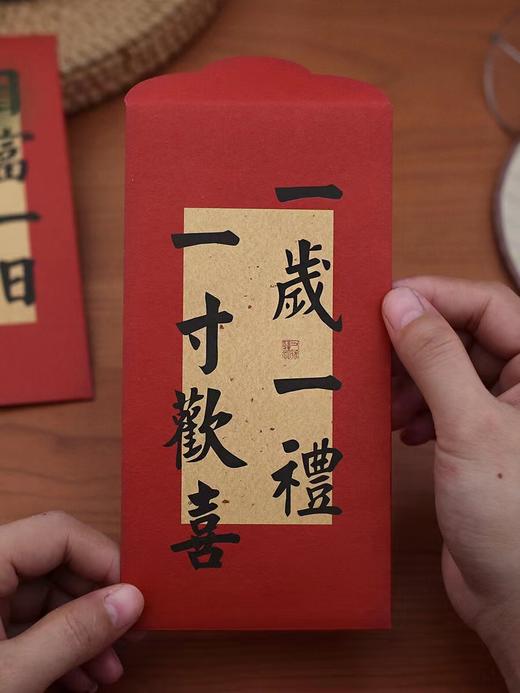 一歲一禮
一寸歡喜
富一日